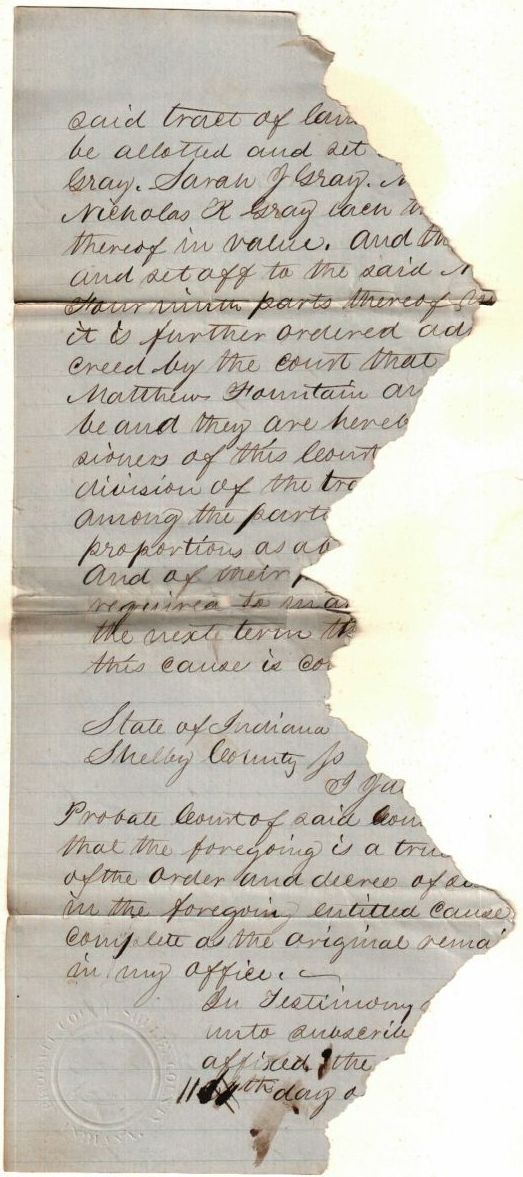 said tract of lan
be allotted and set
Gray. Sarah J Gray. N
Nicholas K Gray each
thereof in value. And th
and set off to the said N
Four ninth parts thereof
it is further ordered ad
creed by the court that
Matthews Fountain
be and they are hereb
sioners of this Court
division of the tra
among the parti
proportions as ab
And of their
required to ma
the next term th
this cause is con
State of Indiana
Shelby County Ss
I
Probate Court of said Coun
that the foregoing is a true
of the order and decree of
in the foregoing entitled cause
complete as the original remai
in my office.
In Testimony
unto subscribe
affixed the
day o